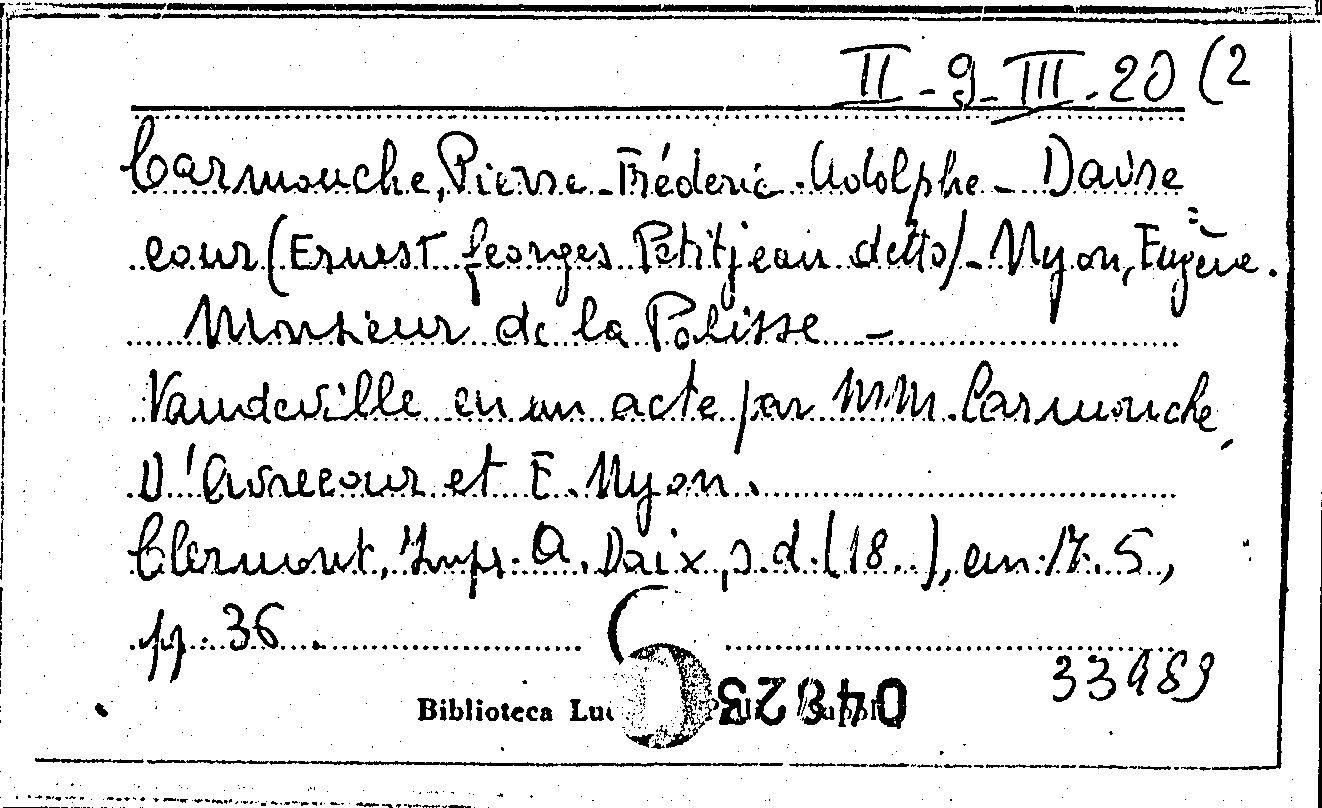 II-9-III-20 (2
Carmouche, Pierre-Fréderic-Adolphe - Davre
cour (Ernest Georges Petitjean detto) - Nyon, Eugène.
Monsieur de la Palisse -
Vaudeville en un acte par MM. Carmouche,
D'Avrecour et E. Nyon.
Clermont, Impr. A. Daix, s.d. (18..), cm. 17.5,
pp. 36.
33989
Biblioteca